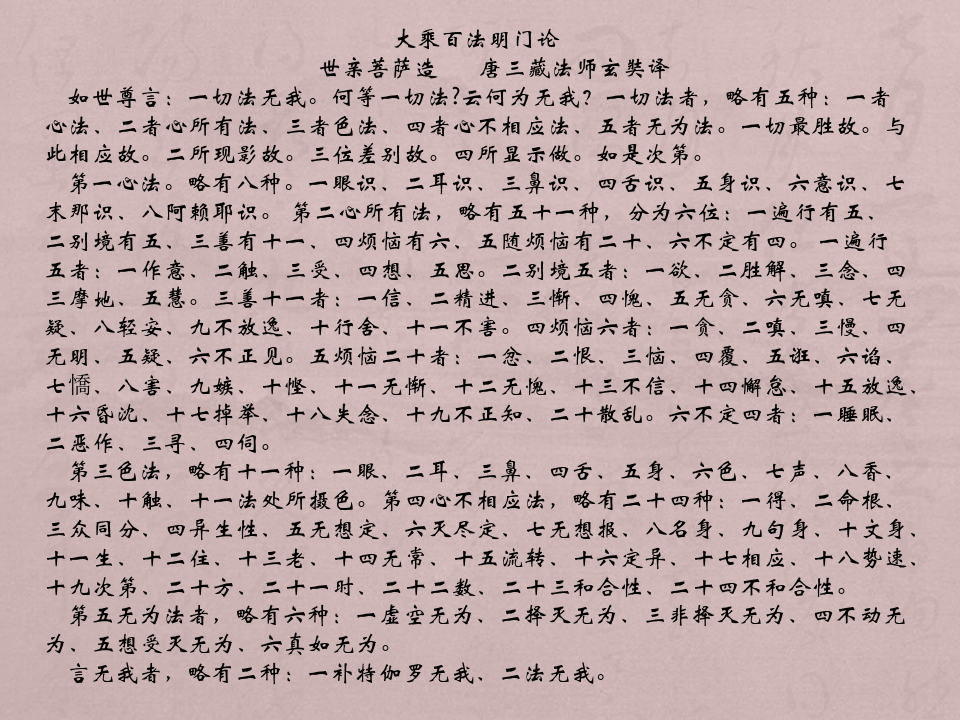 大乘百法明门论
世亲菩萨造 唐三藏法师玄奘译
如世尊言：一切法无我。何等一切法?云何为无我？一切法者，略有五种：一者
心法、二者心所有法、三者色法、四者心不相应法、五者无为法。一切最胜故。与
此相应故。二所现影故。三位差别故。四所显示做。如是次第。
第一心法。略有八种。一眼识、二耳识、三鼻识、四舌识、五身识、六意识、七
末那识、八阿赖耶识。 第二心所有法，略有五十一种，分为六位：一遍行有五、
二别境有五、三善有十一、四烦恼有六、五随烦恼有二十、六不定有四。 一遍行
五者：一作意、二触、三受、四想、五思。二别境五者：一欲、二胜解、三念、四
三摩地、五慧。三善十一者：一信、二精进、三惭、四愧、五无贪、六无嗔、七无
疑、八轻安、九不放逸、十行舍、十一不害。四烦恼六者：一贪、二嗔、三慢、四
无明、五疑、六不正见。五烦恼二十者：一忿、二恨、三恼、四覆、五诳、六谄、
七憍、八害、九嫉、十悭、十一无惭、十二无愧、十三不信、十四懈怠、十五放逸、
十六昏沈、十七掉举、十八失念、十九不正知、二十散乱。六不定四者：一睡眠、
二恶作、三寻、四伺。
第三色法，略有十一种：一眼、二耳、三鼻、四舌、五身、六色、七声、八香、
九味、十触、十一法处所摄色。第四心不相应法，略有二十四种：一得、二命根、
三众同分、四异生性、五无想定、六灭尽定、七无想报、八名身、九句身、十文身、
十一生、十二住、十三老、十四无常、十五流转、十六定异、十七相应、十八势速、
十九次第、二十方、二十一时、二十二数、二十三和合性、二十四不和合性。
第五无为法者，略有六种：一虚空无为、二择灭无为、三非择灭无为、四不动无
为、五想受灭无为、六真如无为。
言无我者，略有二种：一补特伽罗无我、二法无我。